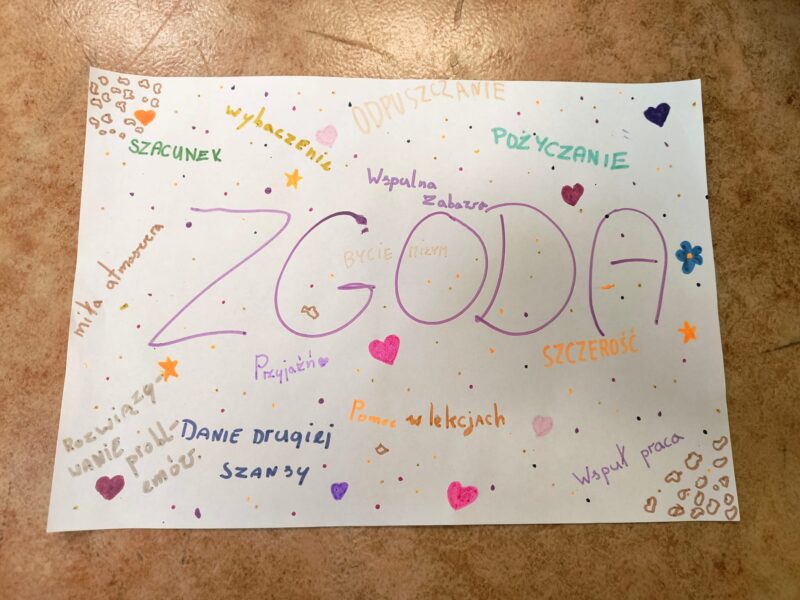 ODPUSZCZANIE
wybaczenie
SZACUNEK
POŻYCZANIE
Wspulna
Zabawa
ZGODA
BYCIE MIŁYM
miła atmosfera
SZCZEROŚĆ
Przyjaźń
Rozwiązy-
wanie probl-
emów.
Pomoc w lekcjach
DANIE DRUGIEJ
SZANSY
Wspuł praca